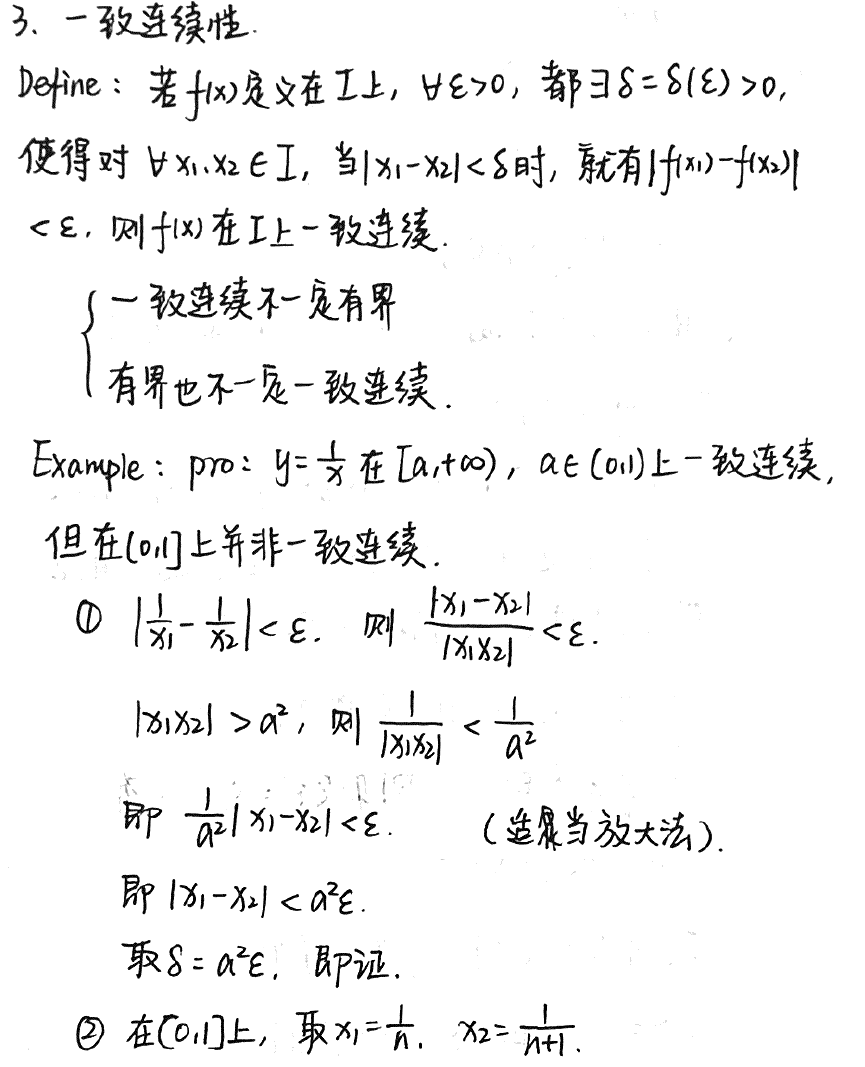 3、一致连续性.
Define：若f(x)定义在I上，∀ε>0，都∃δ=δ(ε)>0,
使得对∀x₁、x₂∈I，当|x₁-x₂|<δ时，就有|f(x₁)-f(x₂)|
<ε. 则f(x)在I上一致连续.
一致连续不一定有界
有界也不一定一致连续.
Example：pro：y=1/x 在[a,+∞)，a∈(0,1)上一致连续，
但在(0,1]上并非一致连续.
① |1/x₁-1/x₂|<ε. 则 |x₁-x₂|/|x₁x₂|<ε.
|x₁x₂|>a²，则 1/|x₁x₂| < 1/a²
即 1/a²|x₁-x₂|<ε. (适当放大法).
即|x₁-x₂|<a²ε.
取δ=a²ε. 即证.
② 在[0,1]上，取x₁=1/n. x₂=1/(n+1).